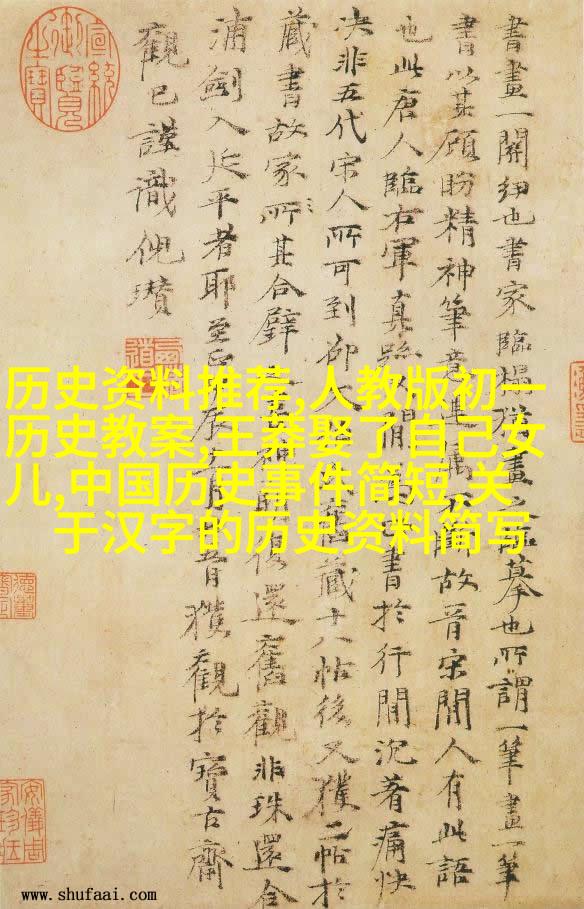 書畫一關紐也書家臨搨猶畫之臨摹也所謂一筆畫一筆
書以其顧盼精神筆意故晉宋間人有此語
也此唐人臨右軍真書於行間沉著痛快
決非五代宋人所可到卻藏十八帖後又獲二帖於
藏書故家所其合璧還舊觀非珠還合
浦劍入延平者耶至獲觀於寶古齋
觀已謹識倪瓚
宣統御覽之寶
安儀周家珍藏
历史资料推荐,人教版初一
历史教案,王莽娶了自己女
儿,中国历史事件简短,关
于汉字的历史资料简写
www.shufaai.com